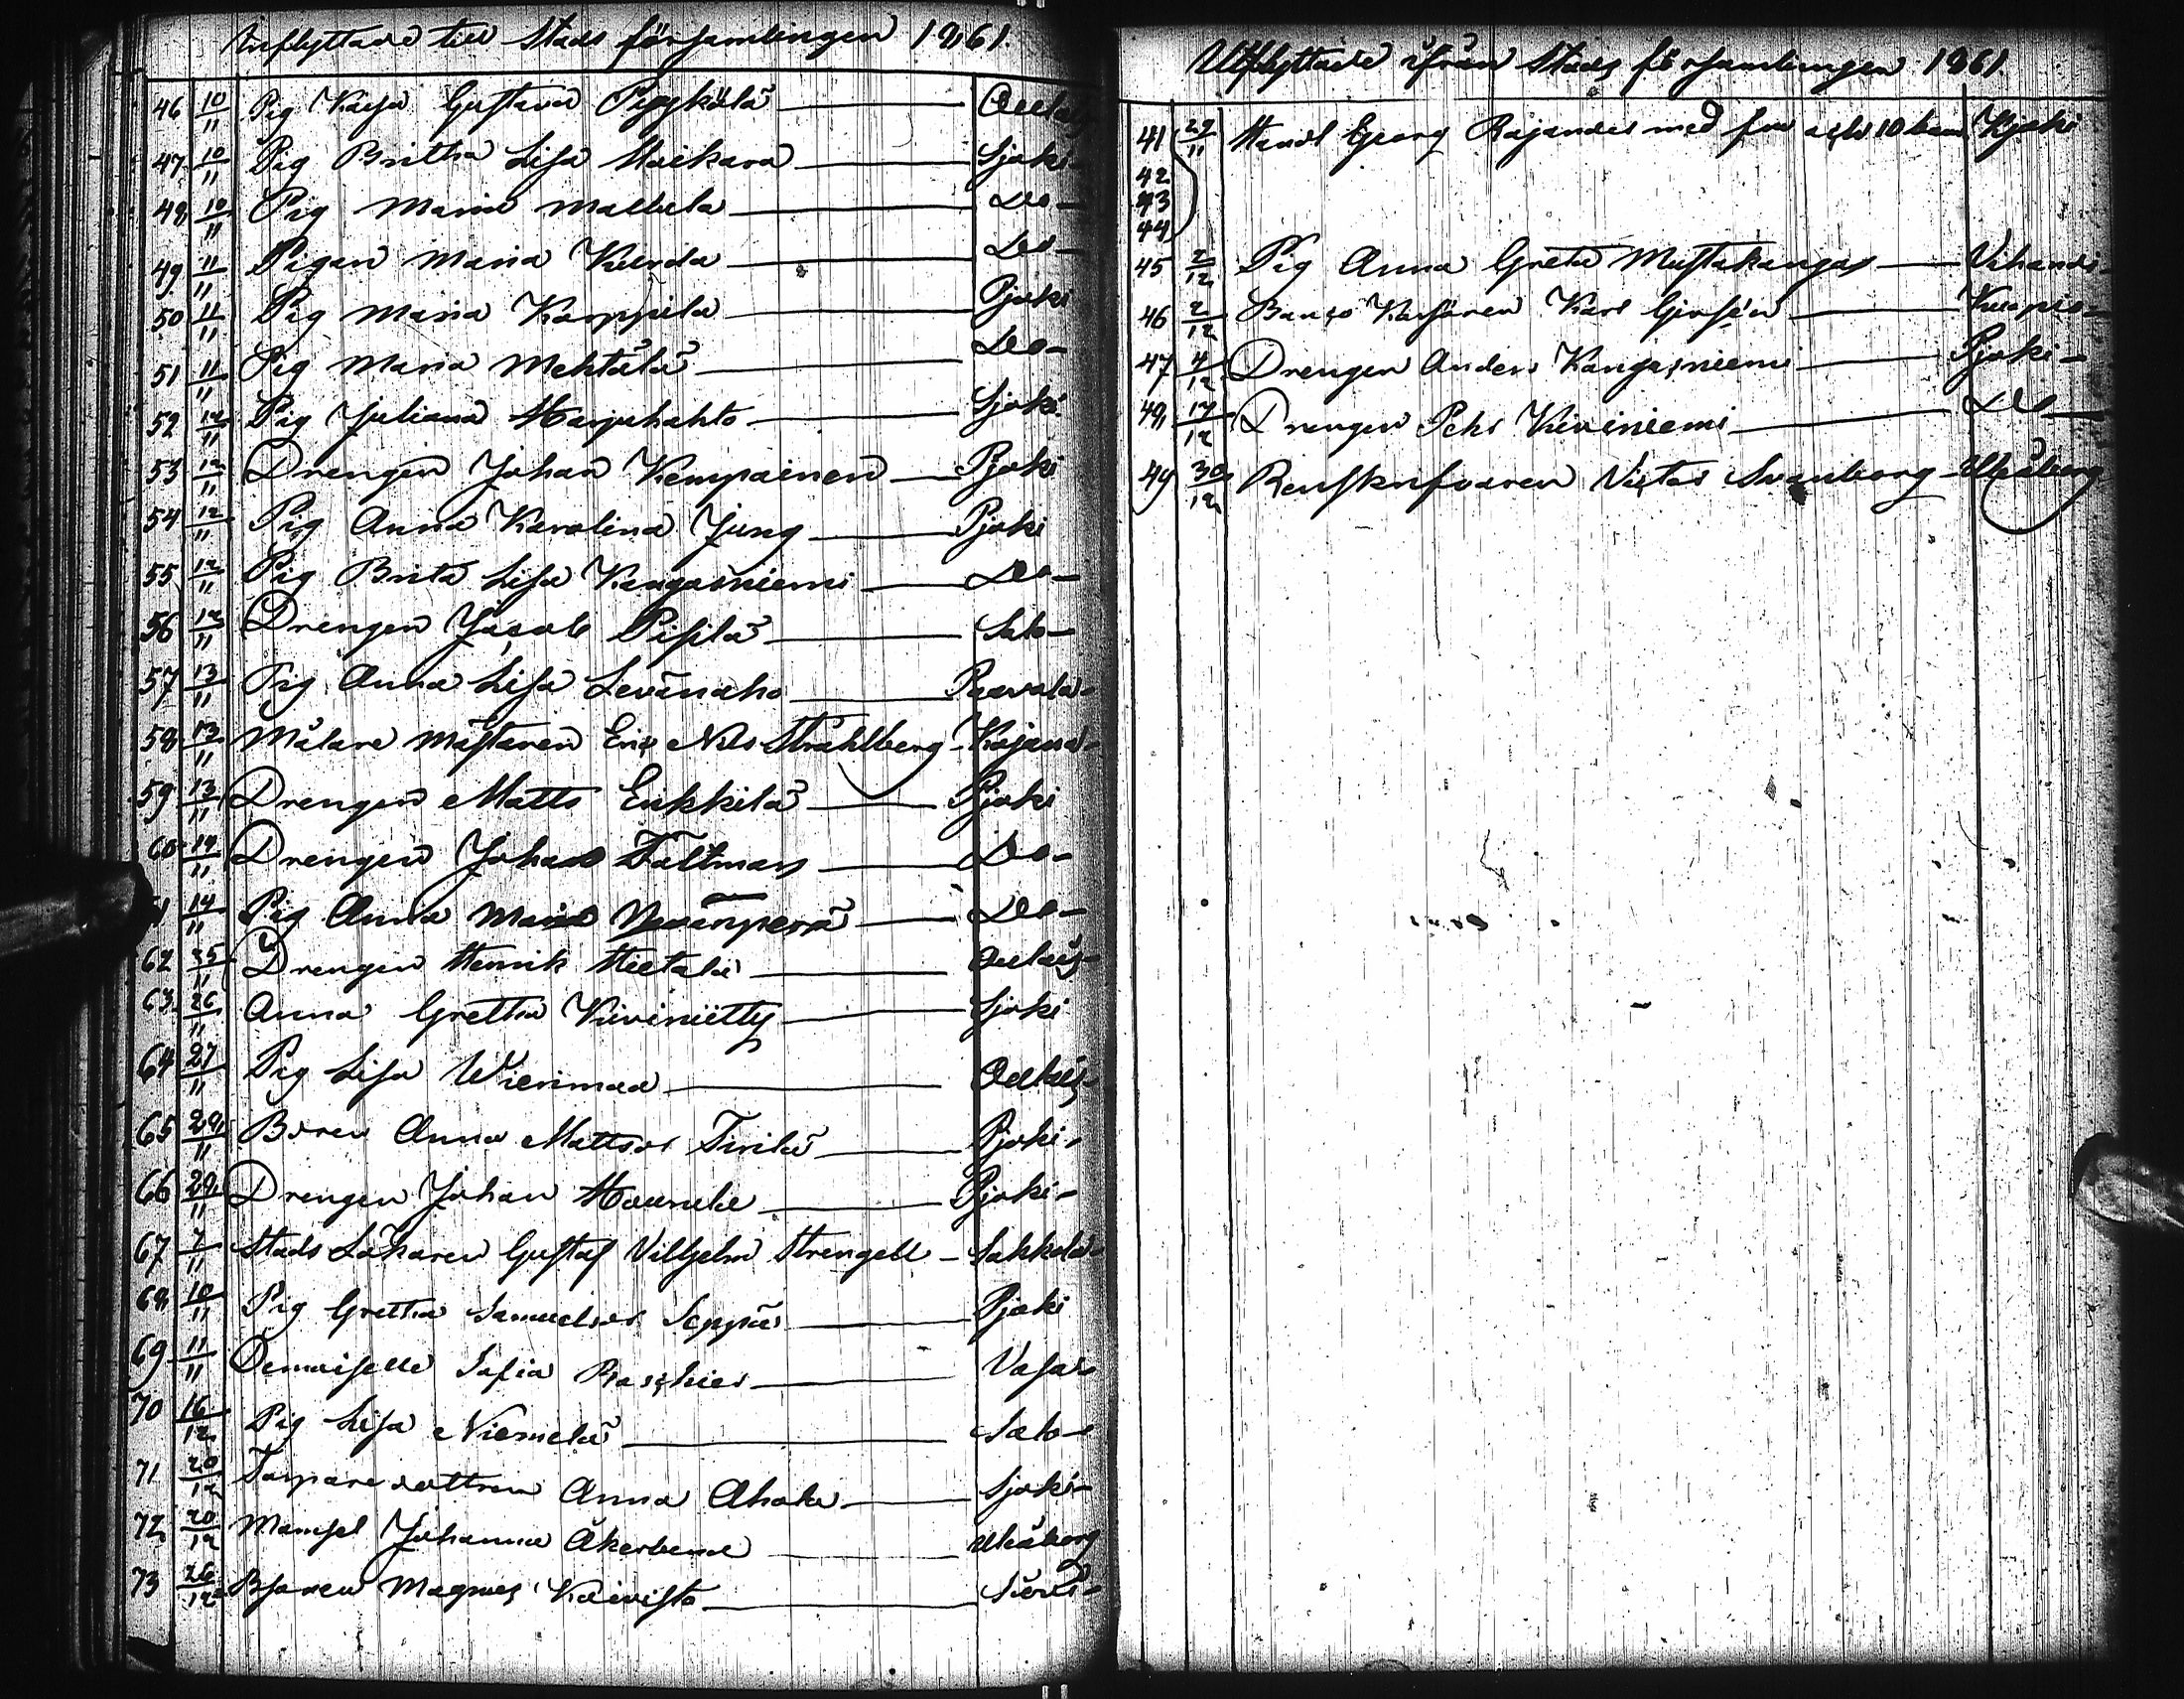 Inflyttade till Stads församlingen 1861.
46 10/11 Pig Kaisa Gustava Pyykölä — Oulais
47 10/11 Pig Britha Lisa Maikara — Sjoki
48 10/11 Pig Maria Mallela — Do —
49 11/11 Pigan Maria — Do —
50 11/11 Pig Maria Karppila — Pjoki
51 11/11 Pig Maria Mehtälä — Do —
52 12/11 Pig Juliana Harjuhahto — Sjoki
53 12/11 Drengen Johan Kempainen — Pjoki
54 12/11 Pig Anna Karolina Jung — Pjoki
55 12/11 Pig Brita Lisa Kangasniemi — Do —
56 12/11 Drengen Jacob Pislä — Salo —
57 13/11 Pig Anna Lisa Levänaho — Paavola —
58 13/11 Målare mästaren Eric Nils Strahlberg — Kajana —
59 13/11 Drengen Matts Eukkilä — Pjoki
60 14/11 Drengen Johan Faltman — Do —
61 14/11 Pig Anna Maria Nevänperä — Do —
62 25/11 Drengen Henrik Hietala — Oulais —
63 26/11 Anna Gretha Kiviniitty — Sjoki
64 27/11 Pig Lisa Wierimaa — Oulais —
65 28/11 Anna Mattsdr Tirilä — Pjoki —
66 28/11 Drengen Johan — Pjoki —
67 7/11 Stads Läkaren Gustaf Vilhjelm Strengell — Sakkola —
68 10/11 Pig Gretha Samuelsdr Seppä — Pjoki
69 11/11 Demoiselle Sofia — Vasa —
70 16/12 Pig Lisa Niemelä — Salo —
71 20/12 Torpare dottren Anna Ahola — Sjoki —
72 20/12 Mamsel Johanna — Uleåborg
73 26/12 Magnus Koivisto — Sievi —
Utflyttade ifrån Stads församlingen 1861.
41 29/11 Handl Georg Rajander med fru och 10 barn Kjoki
42
43
44
45 2/12 Pig Anna Greta Mustakangas — Vihandi —
46 2/12 Karl — Kuopio —
47 4/12 Drengen Anders Kangasniemi — Pjoki —
48 17/12 Drengen Pehr Kiviniemi — Do —
49 30/12 Victor Svanborg — Uleåborg